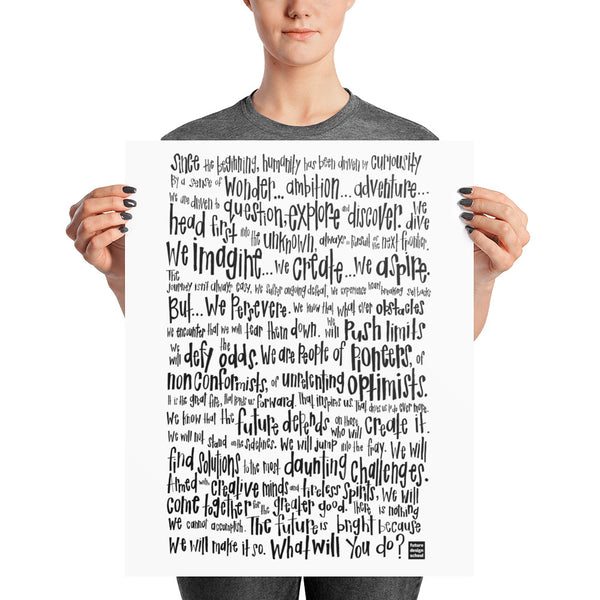 Since the beginning, humanity has been driven by curiousity
By a sense of wonder... ambition... adventure...
We are driven to question, explore and discover. We dive
head first into the unknown, always in pursuit of the next frontier.
We imagine... we create... we aspire.
The journey isn't always easy, we suffer ongoing defeat, we experience heart breaking set backs
But... we persevere. We know that what ever obstacles
we encounter that we will tear them down. We will push limits
We will defy the odds. We are people of pioneers, of
nonconformists, of unrelenting optimists.
It is the great fire, that forward. That inspires us. That drives us to do ever more.
We know that the future depends on those who will create it.
We will not stand on the sidelines. We will jump into the fray. We will
find solutions to the most daunting challenges.
Armed with creative minds and tireless spirits, we will
come together for the greater good. There is nothing
we cannot accomplish. The future is bright because
we will make it so. What will you do?
future
design
school